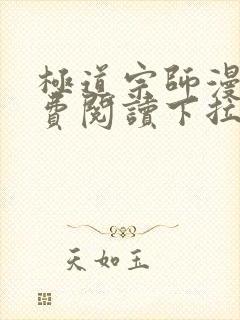 極道宗師漫
費閱讀下拉
天如玉